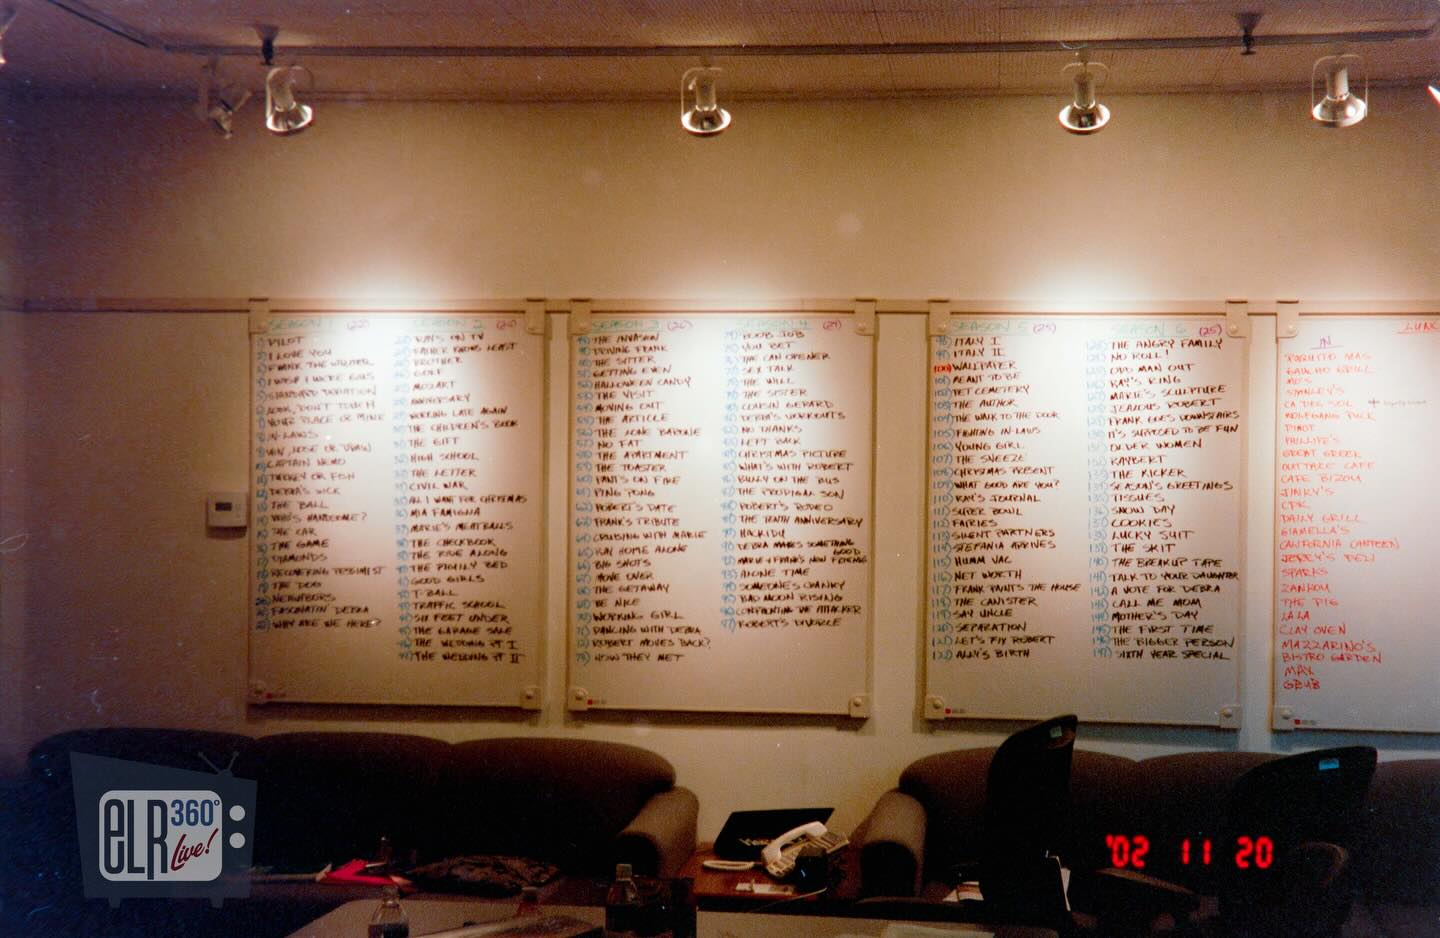 SEASON 1 (22)
1) PILOT
2) I LOVE YOU
3) FRANK THE WRITER
4) I WISH I WERE GUS
5) STANDARD DEVIATION
6) LOOK, DON'T TOUCH
7) YOUR PLACE OR MINE
8) IN-LAWS
9) WIN, LOSE OR DRAW
10) CAPTAIN NEMO
11) TURKEY OR FISH
12) DEBRA'S SICK
13) THE BALL
14) WHO'S HANDSOME?
15) THE CAR
16) THE GAME
17) DIAMONDS
18) RECOVERING PESSIMIST
19) THE DOG
20) NEIGHBORS
21) FASCINATIN' DEBRA
22) WHY ARE WE HERE?
SEASON 2 (25)
RAY'S ON TV
FATHER KNOWS LEAST
BROTHER
GOLF
MOZART
ANNIVERSARY
WORKING LATE AGAIN
THE CHILDREN'S BOOK
THE GIFT
HIGH SCHOOL
THE LETTER
CIVIL WAR
ALL I WANT FOR CHRISTMAS
MIA FAMIGLIA
MARIE'S MEATBALLS
THE CHECKBOOK
THE RIDE ALONG
THE FAMILY BED
GOOD GIRLS
T-BALL
TRAFFIC SCHOOL
SIX FEET UNDER
THE GARAGE SALE
THE WEDDING PT I
THE WEDDING PT II
SEASON 3 (26)
THE INVASION
DRIVING FRANK
THE SITTER
GETTING EVEN
HALLOWEEN CANDY
THE VISIT
MOVING OUT
THE ARTICLE
THE LONE BARONE
NO FAT
THE APARTMENT
THE TOASTER
PANTS ON FIRE
PING PONG
ROBERT'S DATE
FRANK'S TRIBUTE
CRUISING WITH MARIE
RAY HOME ALONE
BIG SHOTS
MOVE OVER
THE GETAWAY
BE NICE
WORKING GIRL
DANCING WITH DEBRA
ROBERT MOVES BACK?
HOW THEY MET
SEASON 4 (24)
BOOB JOB
YOU BET
THE CAN OPENER
SEX TALK
THE WILL
THE SISTER
COUSIN GERARD
DEBRA'S WORKOUTS
NO THANKS
LEFT BACK
CHRISTMAS PICTURE
WHAT'S WITH ROBERT
BULLY ON THE BUS
THE PRODIGAL SON
ROBERT'S RODEO
THE TENTH ANNIVERSARY
HACKIDU
DEBRA MAKES SOMETHING GOOD
MARIE + FRANK'S NEW FRIENDS
ALONE TIME
SOMEONE'S CRANKY
BAD MOON RISING
CONFRONTING THE ATTACKER
ROBERT'S DIVORCE
SEASON 5 (25)
98) ITALY I
99) ITALY II
100) WALLPAPER
101) MEANT TO BE
102) PET CEMETERY
103) THE AUTHOR
104) THE WALK TO THE DOOR
105) FIGHTING IN-LAWS
106) YOUNG GIRL
107) THE SNEEZE
108) CHRISTMAS PRESENT
109) WHAT GOOD ARE YOU?
110) RAY'S JOURNAL
111) SUPER BOWL
112) FAIRIES
113) SILENT PARTNERS
114) STEFANIA ARRIVES
115) HUMM VAC
116) NET WORTH
117) FRANK PAINTS THE HOUSE
118) THE CANISTER
119) SAY UNCLE
120) SEPARATION
121) LET'S FIX ROBERT
122) ALLY'S BIRTH
SEASON 6 (25)
THE ANGRY FAMILY
NO ROLL!
ODD MAN OUT
RAY'S RING
MARIE'S SCULPTURE
JEALOUS ROBERT
FRANK GOES DOWNSTAIRS
IT'S SUPPOSED TO BE FUN
OLDER WOMEN
RAYBERT
THE KICKER
SEASON'S GREETINGS
TISSUES
SNOW DAY
COOKIES
LUCKY SUIT
THE SKIT
THE BREAKUP TAPE
TALK TO YOUR DAUGHTER
A VOTE FOR DEBRA
CALL ME MOM
MOTHER'S DAY
THE FIRST TIME
THE BIGGER PERSON
SIXTH YEAR SPECIAL
LUNC
IN
POQUITO MAS
GAUCHO GRILL
MO'S
STANLEY'S
CA DEL SOL
WOLFGANG PUCK
PINOT
PHILLIPE'S
GREAT GREEK
OUTTAKE CAFE
CAFE BIZOU
JINKY'S
CPK
DAILY GRILL
GIANELLA'S
CALIFORNIA CANTEEN
JERRY'S DELI
SPARKS
ZANKOU
THE PIG
LALA
CLAY OVEN
MAZZARINO'S
BISTRO GARDEN
MAX
GBUB
eLR 360° Live!
'02 11 20